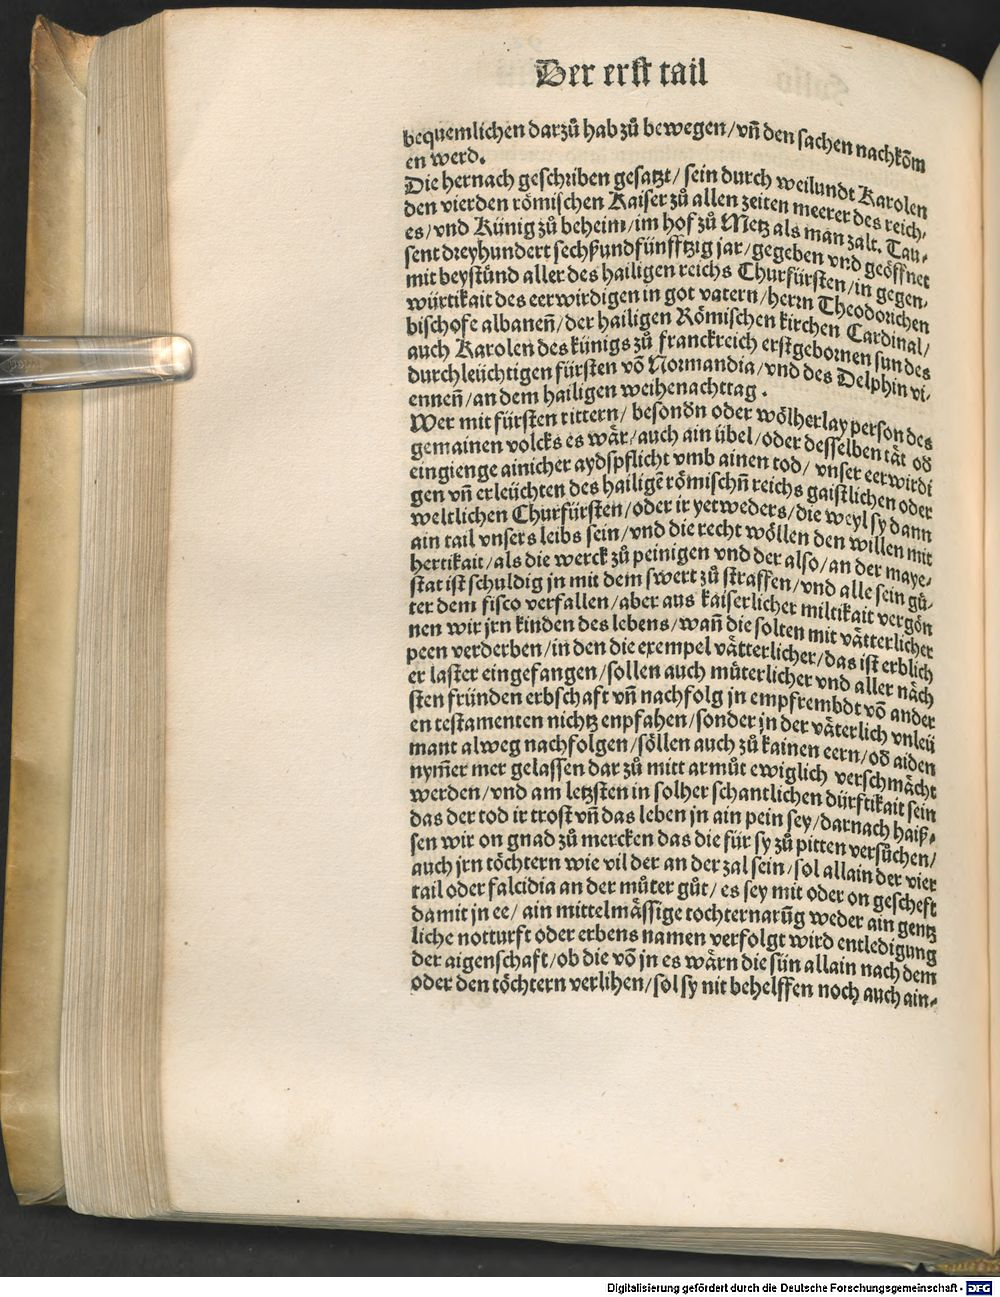 Der erst tail
bequemlichen darzů hab zů bewegen/vñ den sachen nachkõm
en werd.
Die hernach geschriben gesatzt/ sein durch weilundt Karolen
den vierden römischen Kaiser zů allen zeiten meerer des reich-
es/vnd Künig zů beheim/im hof zů Metz als man zalt. Tau-
sent dreyhundert sechßundfünfftzig jar/gegeben vnd geöffnet
mit beystůnd aller des hailigen reichs Churfürsten/in gegen-
würtikait des eerwirdigen in got vatern/herrn Theodorichen
bischofe albaneñ/der hailigen Römischen kirchen Cardinal/
auch Karolen des künigs zů franckreich erstgebornen sun des
durchleüchtigen fürsten võ Normandia/vnd des Delphin vi-
enneñ/an dem hailigen weihenachttag.
Wer mit fürsten rittern/ besondn oder wölherlay person des
gemainen volcks es wär/auch ain übel/oder desselben tät od
eingienge ainicher aydspflicht vmb ainen tod/ vnser eerwirdi
gen vñ erleüchten des hailigẽ römischñ reichs gaistlichen oder
weltlichen Churfürsten/oder ir yetweders/die weyl sy dann
ain tail vnsers leibs sein/vnd die recht wöllen den willen mit
hertikait/als die werck zů peinigen vnd der also/an der maye-
stat ist schuldig jn mit dem swert zů straffen/vnd alle sein gů-
ter dem fisco verfallen/aber aus kaiserlicher miltikait vergön
nen wir jrn kinden des lebens/wañ die solten mit vätterlicher
peen verderben/in den die exempel vätterlicher/das ist erblich
er laster eingefangen/sollen auch můterlicher vnd aller näch
sten fründen erbschaft vñ nachfolg jn empfrembdt võ ander
en testamenten nichtz enpfahen/sonder jn der väterlich vnleü
mant alweg nachfolgen/söllen auch zů kainen eern/od aiden
nym̃er mer gelassen dar zů mitt armůt ewiglich verschmächt
werden/vnd am letzsten in solher schantlichen dürftikait sein
das der tod ir trost vñ das leben jn ain pein sey/darnach haiß-
sen wir on gnad zů mercken das die für sy zů pitten versůchen/
auch jrn töchtern wie vil der an der zal sein/sol allain der vier
tail oder falcidia an der můter gůt/ es sey mit oder on gescheft
damit jn ee/ ain mittelmässige tochternarũg weder ain gentz
liche notturft oder erbens namen verfolgt wird entledigung
der aigenschaft/ob die võ jn es wärn die sün allain nach dem
oder den töchtern verlihen/sol sy nit behelffen noch auch ain-
Digitalisierung gefördert durch die Deutsche Forschungsgemeinschaft - DFG